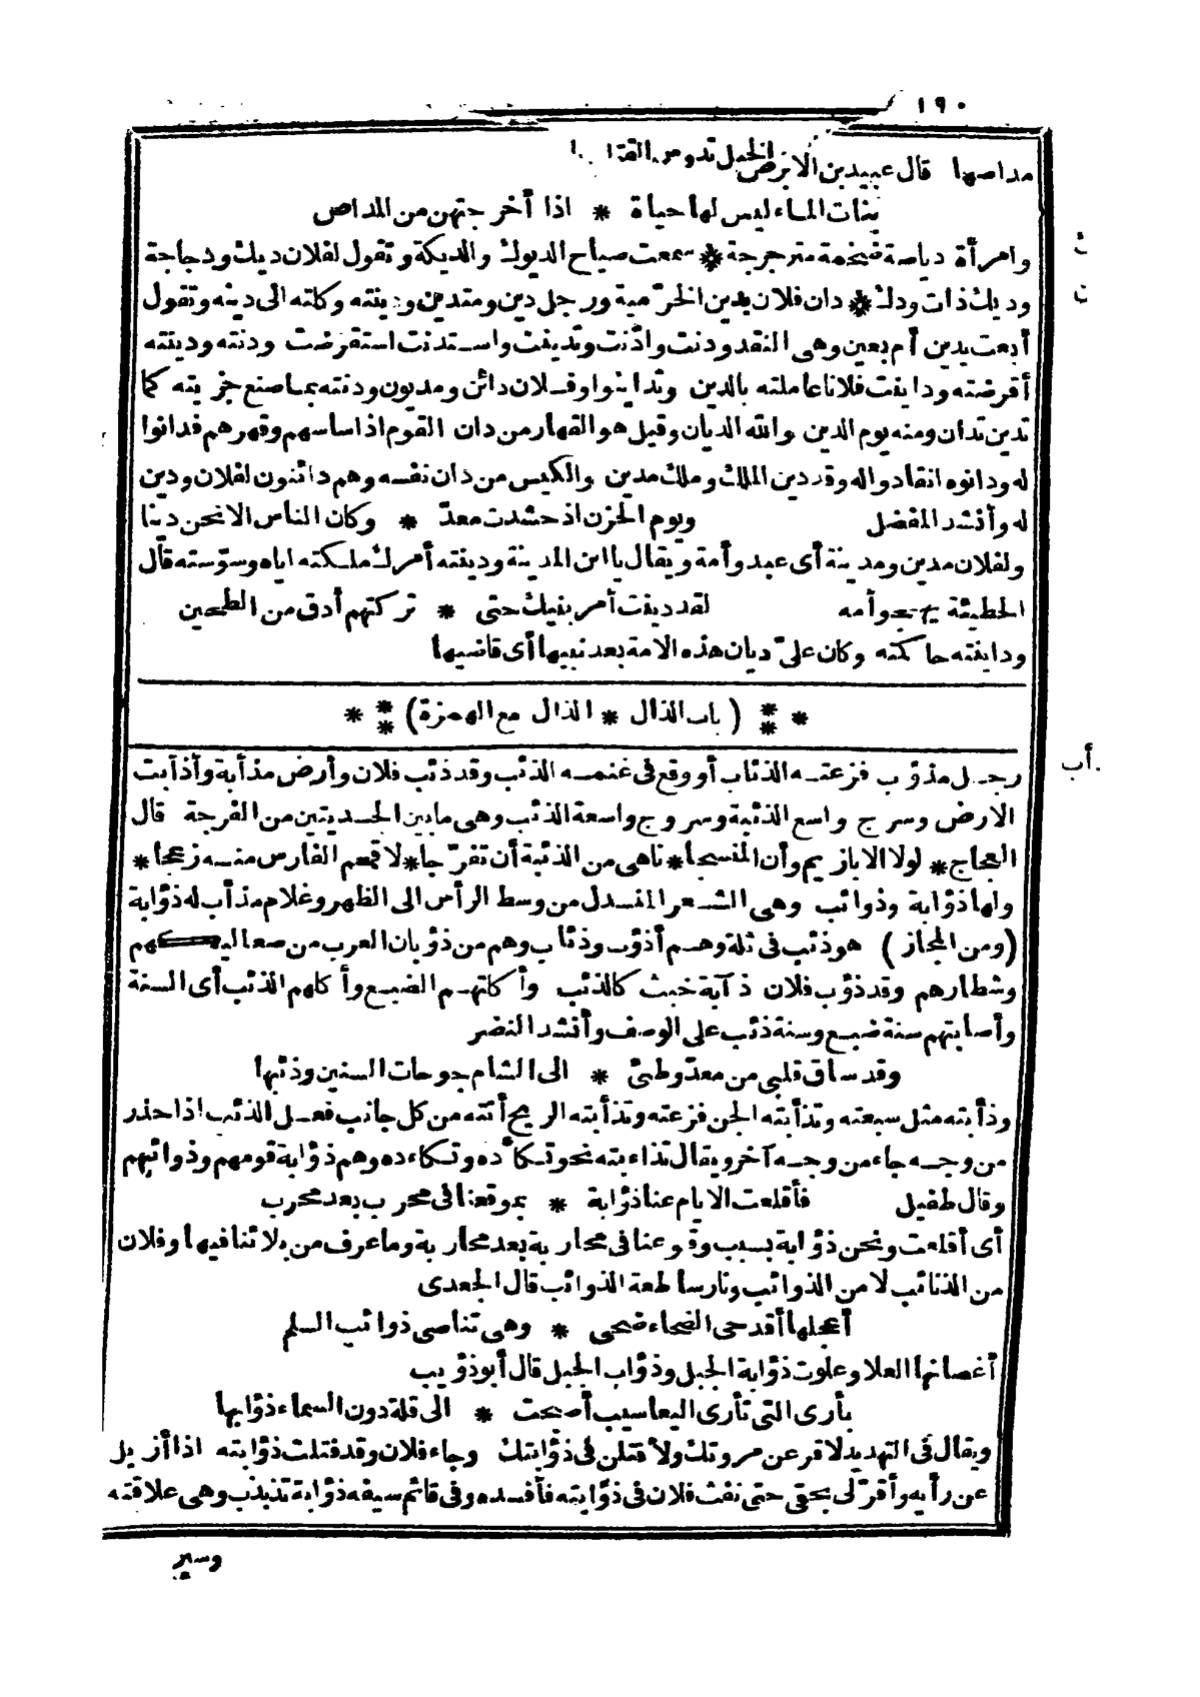 ١٩٠
مداصها قال عبيد بن الابرص
بنات الماء ليس لها حياة * اذا أخرجتهن من المداص
وامرأة دياصة ضخمة مترجرجة * سمعت صياح الديوك والديكة وتقول لفلان ديك ودجاجة
وديك ذات ودك * دان فلان بدين الخرّمية ورجل دين ومتدين ودينته وكلته الى دينه وتقول
أبعت بدين أم بعين وهى النقد ودنت وادّنت وتدينت واستدنت استقرضت ودنته ودينته
أقرضته وداينت فلانا عاملته بالدين وتداينوا وفلان دائن ومديون ودنته بما صنع جزيته كما
تدين تدان ومنه يوم الدين والله الديان وقيل هو القهار من دان القوم اذا ساسهم وقهرهم فدانوا
له ودانوه انقادوا له وقد دين الملك وملك مدين والكيس من دان نفسه وهم دائنون لفلان ودين
له وأنشد المفضل ويوم الحزن اذ حشدت معدّ * وكان الناس الا نحن دينا
ولفلان مدين ومدينة أى عبد وأمة ويقال يا ابن المدينة ودينته أمرك ملكته اياه وسوّسته قال
الحطيئة يهجو أمه لقد دينت أمر بنيك حتى * تركتهم أدق من الطحين
وداينته حاكمته وكان علىّ ديان هذه الامة بعد نبيها أى قاضيها
* * * (باب الذال * الذال مع الهمزة) * * *
أب
رجل مذؤب فزعته الذئاب أو وقع فى غنمه الذئب وقد ذئب فلان وأرض مذأبة وأذأبت
الارض وسرج واسع الذئبة وسروج واسعة الذئب وهى ما بين الجديتين من الفرجة قال
العجاج * لولا الابازيم وأن المنسجا * ناهى من الذئبة أن تفرّجا * لاقحم الفارس منه زعجا *
ولها ذؤابة وذوائب وهى الشعر المنسدل من وسط الرأس الى الظهر وغلام مذأب له ذؤابة
(ومن المجاز) هو ذئب فى ثلة وهم أذؤب وذئاب وهم من ذؤبان العرب من صعاليكهم
وشطارهم وقد ذؤب فلان ذآبة خبث كالذئب وأكلتهم الضبع وأكلهم الذئب أى السنة
وأصابتهم سنة ضبع وسنة ذئب على الوصف وأنشد النضر
وقد ساق قلبى من معدّ وطيئ * الى الشام جوحات السنين وذئبها
وذأبته مثل سبعته وتذأبته الجن فزعته وتذأبته الريح أتته من كل جانب فعل الذئب اذا حذر
من وجه جاء من وجه آخر ويقال تذاءبته نحو تكأده وتكاءده وهم ذؤابة قومهم وذوائبهم
وقال طفيل فأقلعت الايام عنا ذؤابة * بموقعنا فى محرب بعد محرب
أى أقلعت ونحن ذؤابة بسبب وقوعنا فى محاربة بعد محاربة وما عرف من بلائنا فيها وفلان
من الذنائب لا من الذوائب ونار ساطعة الذوائب قال الجعدى
أعجلها أقدحى الضحاء ضحى * وهى تناصى ذوائب السلم
أغصانها العلا وعلوت ذؤابة الجبل وذؤاب الجبل قال أبو ذؤيب
بأرى التى تأرى اليعاسيب أصبحت * الى قلة دون السماء ذؤابها
ويقال فى التهديد لاقرعن مروتك ولأفتلن فى ذؤابتك وجاء فلان وقد فتلت ذؤابته اذا أزيل
عن رأيه وأقرّ لى بحقى حتى نفث فلان فى ذؤابته فأفسده وفى قائم سيفه ذؤابة تذبذب وهى علاقته
وسير